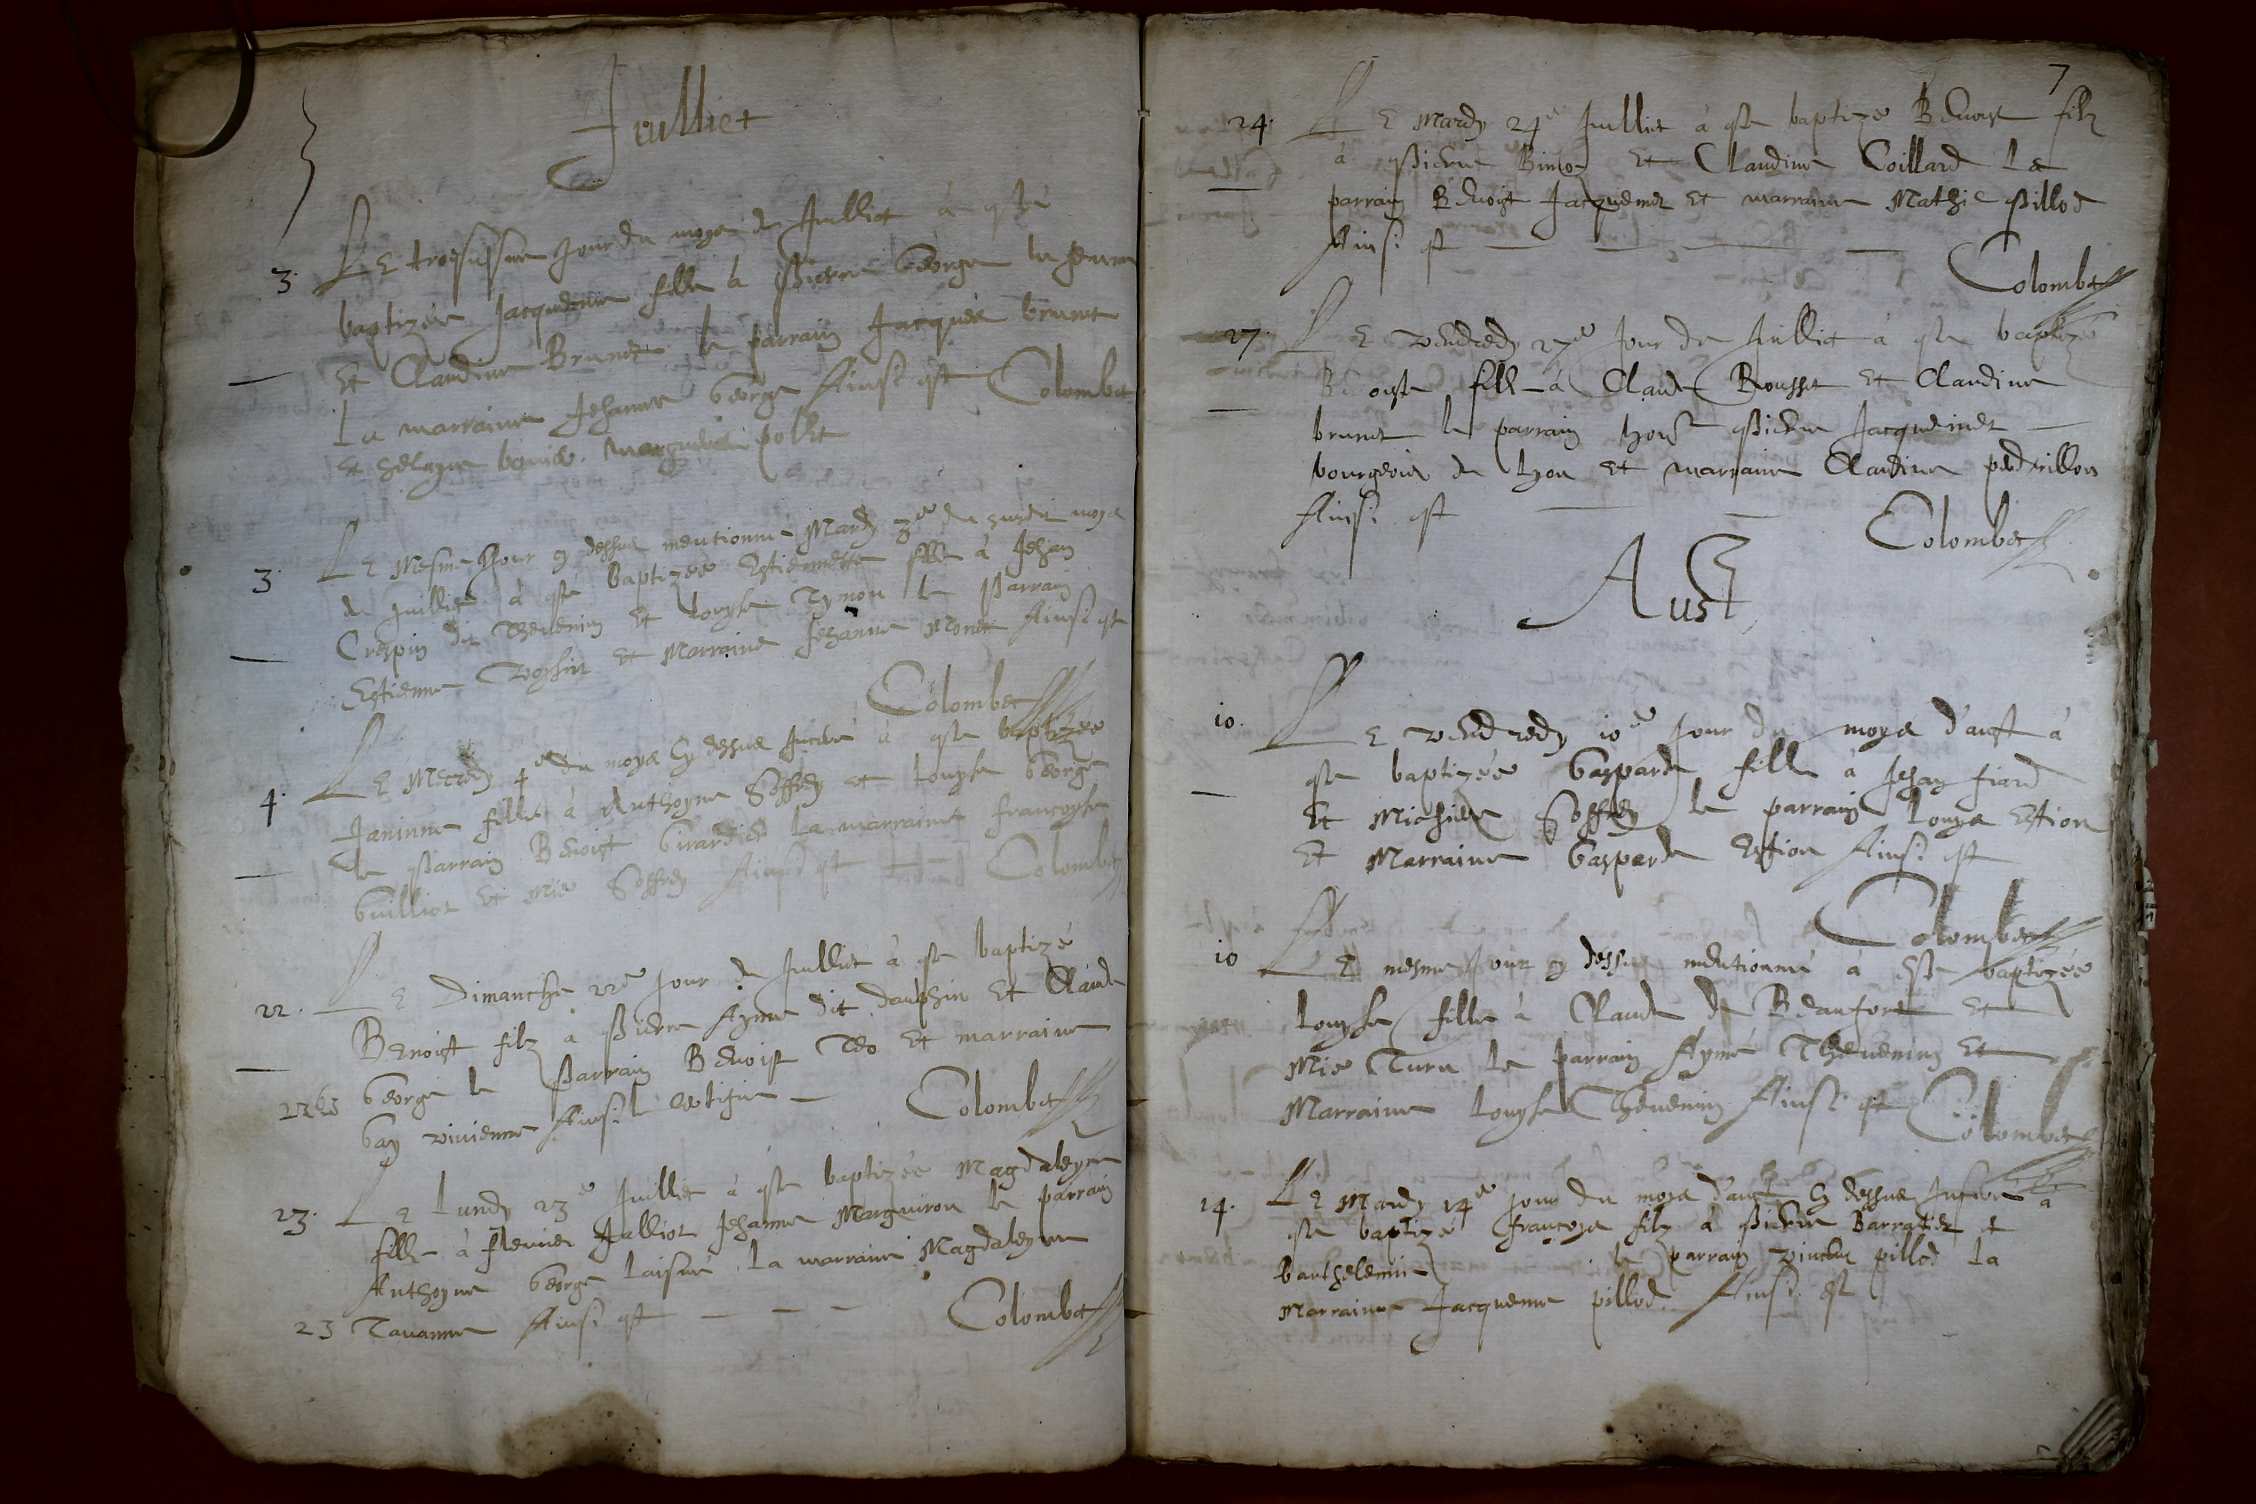 Juilliet
3. Le troesiesme Jour du moys de Juilliet à esté
baptizée Jacquemme fille à Pierre George le Jeune
Et Claudine Brunet le parrain Jacques brunet
La marraine Jehanne George Ainsi est Colombet
et marguerite pollet
3. Le Mesme Jour cy dessus mentionné Mardy 3e du susdit moys
de Juilliet à esté baptizée Estiennette fille à Jehan
Crespin dit Thevenin Et Louyse Tynon le Parrain
Estienne Et Marraine Jehanne Monet Ainsi est
Colombet
4. Le Mecredy 4e du moys Cy dessus à esté baptizée
Janinne fille à Anthoyne Soffrey et Louyse George
le Parrain Benoist Girardet La marraine francoyse
Guilliot Et Mie Soffrey Ainsi est Colombet
22. Le Dimanche 22e Jour de Juilliet à esté baptizé
Benoist filz à Pierre Ayme dit dauphin Et Claude
George le Parrain Benoist Teo Et marraine
Gay vivienne Ainsi Colombet
23. Le Lundy 23e Juilliet à esté baptizée Magdaleyne
fille à Jalliot Jehanne Marguiron le parrain
Anthoyne George laisné La marraine Magdaleyne
23 Tavanne Ainsi est Colombet
7
24. Le Mardy 24e Juilliet à esté baptizé Benoist filz
à Pierre Et Claudine Coillard Le
parrain Benoist Jacquemet Et marraine Mathie Pillod
Ainsi est
Colombet
27. Le vendredy 27e Jour de Juillet à esté baptizé
Benoiste fille à Claude Rousset Et Claudine
brunet le parrain honr Pierre Jacquemet
bourgeois de Lyon Et marraine Claudine perdrillon
Ainsi est
Colombet
Aust
10. Le vendredy 10e Jour du moys d'aust à
esté baptizée Gasparde fille à Jehan fiard
Et Michiere Soffrey le parrain Louys Estion
Et Marraine Gasparde Estion Ainsi est
Colombet
10 Le mesme Jour cy dessus mentionné à esté baptizée
Louyse fille à Claude de Beaufort Et
Mie Turu le parrain Aymé Thevenin Et
Marraine Louyse Thevenin Ainsi est Colombet
14. Le Mardy 14e Jour du moys d'aust Cy dessus à
esté baptizé francoys filz à Pierre Barratier et
barthelemie le parrain vincent pillod La
Marraine Jacquemme pillod Ainsi est